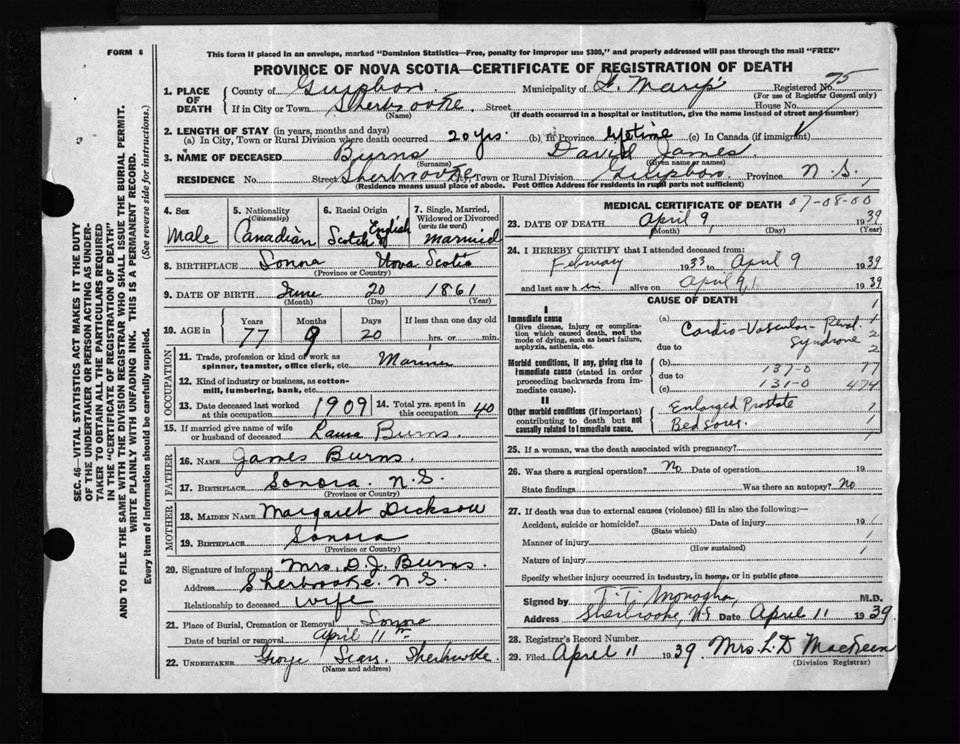 FORM 6
This form if placed in an envelope, marked "Dominion Statistics—Free, penalty for improper use $300," and properly addressed will pass through the mail "FREE"
PROVINCE OF NOVA SCOTIA—CERTIFICATE OF REGISTRATION OF DEATH
SEC. 46—VITAL STATISTICS ACT MAKES IT THE DUTY
OF THE UNDERTAKER OR PERSON ACTING AS UNDER-
TAKER TO OBTAIN ALL THE PARTICULARS REQUIRED
IN THE "CERTIFICATE OF REGISTRATION OF DEATH"
AND TO FILE THE SAME WITH THE DIVISION REGISTRAR WHO SHALL ISSUE THE BURIAL PERMIT.
WRITE PLAINLY WITH UNFADING INK. THIS IS A PERMANENT RECORD.
Every item of information should be carefully supplied. (See reverse side for instructions.)
1. PLACE OF DEATH County of Guysboro Municipality of St. Mary's Registered No. 75
(For use of Registrar General only)
If in City or Town Sherbrooke Street House No.
(Name) (If death occurred in a hospital or institution, give the name instead of street and number)
2. LENGTH OF STAY (in years, months and days)
(a) In City, Town or Rural Division where death occurred 20 yrs. (b) In Province lifetime (c) In Canada (if immigrant)
3. NAME OF DECEASED Burns David James
(Surname) (Given name or names)
RESIDENCE No. Street Sherbrooke City, Town or Rural Division Guysboro Province N.S.
(Residence means usual place of abode. Post Office Address for residents in rural parts not sufficient)
4. Sex
Male
5. Nationality
(Citizenship)
Canadian
6. Racial Origin
Scotch English
7. Single, Married, Widowed or Divorced
(write the word)
Married
8. BIRTHPLACE Sonora Nova Scotia
(Province or Country)
9. DATE OF BIRTH June 20 1861
(Month) (Day) (Year)
10. AGE in Years Months Days If less than one day old
77 9 20 hrs. or min.
OCCUPATION
11. Trade, profession or kind of work as
spinner, teamster, office clerk, etc. Mariner
12. Kind of industry or business, as cotton-
mill, lumbering, bank, etc.
13. Date deceased last worked
at this occupation 1909
14. Total yrs. spent in
this occupation 40
15. If married give name of wife
or husband of deceased Laura Burns.
FATHER
16. NAME James Burns.
17. BIRTHPLACE Sonora. N.S.
(Province or Country)
MOTHER
18. MAIDEN NAME Margaret Dickson
19. BIRTHPLACE Sonora
(Province or Country)
20. Signature of informant Mrs. D.J. Burns.
Address Sherbrooke. N.S.
Relationship to deceased wife
21. Place of Burial, Cremation or Removal Sonora
Date of burial or removal April 11th
22. UNDERTAKER George Sears Sherbrooke
(Name and address)
MEDICAL CERTIFICATE OF DEATH 07-08-00
23. DATE OF DEATH April 9, 1939
(Month) (Day) (Year)
24. I HEREBY CERTIFY that I attended deceased from:
February 1933 to April 9 1939
and last saw him alive on April 9, 1939
CAUSE OF DEATH
Immediate cause
Give disease, injury or complica-
tion which caused death, not the
mode of dying, such as heart failure,
asphyxia, asthenia, etc.
(a) Cardio-Vascular-Renal
due to Syndrome
1
1
2
2
Morbid conditions, if any, giving rise to
immediate cause (stated in order
proceeding backwards from im-
mediate cause).
(b) 137-0 77
due to
(c) 131-0 474
II
Other morbid conditions (if important)
contributing to death but not
causally related to immediate cause.
Enlarged Prostate 1
Bed Sores. 1
25. If a woman, was the death associated with pregnancy?
26. Was there a surgical operation? No Date of operation 19
State findings Was there an autopsy? No
27. If death was due to external causes (violence) fill in also the following:—
Accident, suicide or homicide? Date of injury 19
(State which)
Manner of injury
(How sustained)
Nature of injury
Specify whether injury occurred in industry, in home, or in public place
Signed by M.D.
Address Sherbrooke, N.S Date April 11 1939.
28. Registrar's Record Number
29. Filed April 11 1939 Mrs. L.D MacKeen
(Division Registrar)